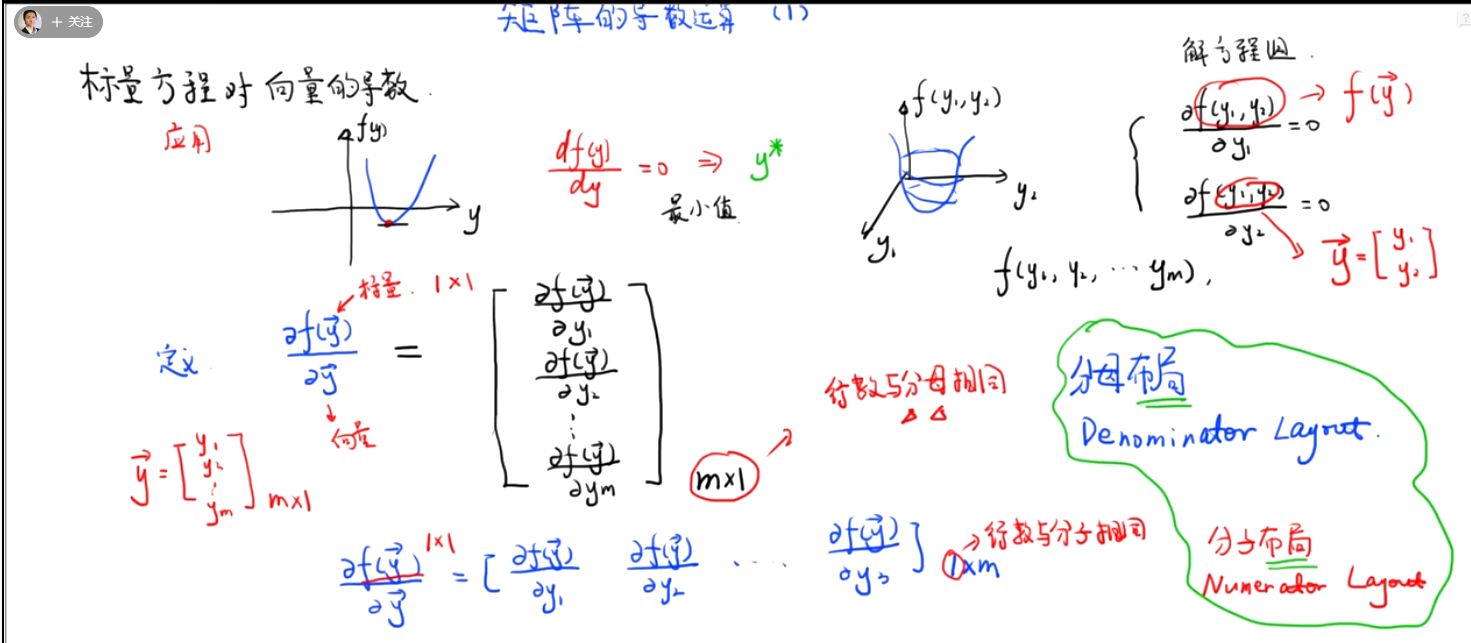 + 关注
矩阵的导数运算 (1)
标量方程对向量的导数.
应用
f(y)
y
df(y)/dy = 0 ⇒ y*
最小值
f(y₁,y₂)
y₂
y₁
解方程组.
∂f(y₁,y₂)/∂y₁ = 0 → f(y⃗)
∂f(y₁,y₂)/∂y₂ = 0
y⃗ = [y₁ y₂]
f(y₁, y₂, ⋯ yₘ),
标量. 1×1
定义. ∂f(y⃗)/∂y⃗ =
向量
y⃗ = [y₁ y₂ ⋮ yₘ] m×1
[∂f(y⃗)/∂y₁
∂f(y⃗)/∂y₂
⋮
∂f(y⃗)/∂yₘ] m×1
行数与分母相同
分母布局
Denominator Layout.
∂f(y⃗)/∂y⃗ 1×1 = [∂f(y⃗)/∂y₁ ∂f(y⃗)/∂y₂ ⋯ ∂f(y⃗)/∂y₃] 1×m
行数与分子相同
分子布局
Numerator Layout